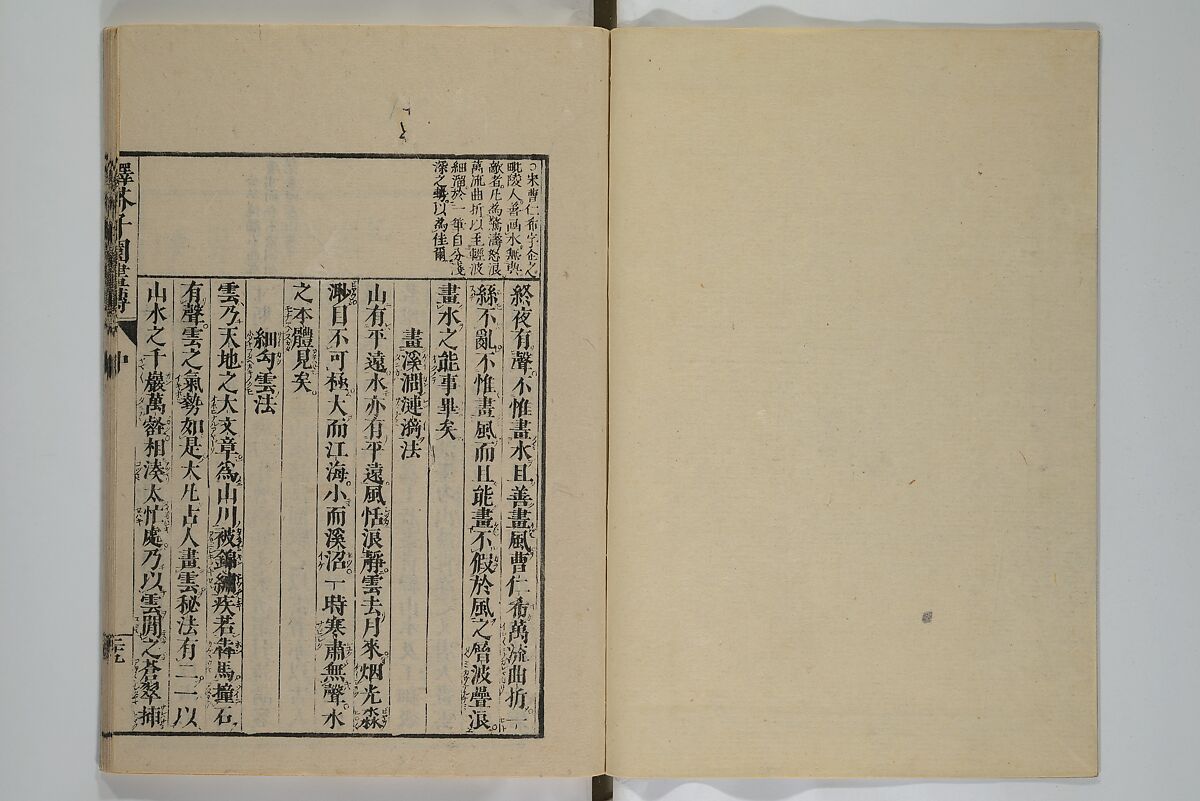 ○宋曹仁希字企之
毗陵人善画水無與
敵者凢為驚濤怒浪
萬流曲折以至輕波
細溜於一筆自分淺
深之勢以為佳爾
終夜有聲不惟畫水且善畫風曹仁希萬流曲折一
絲不亂不惟畫風而且能畫不假於風之曾波疊浪
畫水之能事畢矣
畫溪澗漣漪法
山有平遠水亦有平遠風恬浪靜雲去月來烟光淼
渺目不可極大而江海小而溪沼一時寒肅無聲水
之本體見矣
細勾雲法
雲乃天地之大文章爲山川被錦繡疾若犇馬撞石
有聲雲之氣勢如是大凢古人畫雲秘法有二一以
山水之千巖萬壑相湊太忙處乃以雲閒之蒼翠揷
譯芥子園畫傳